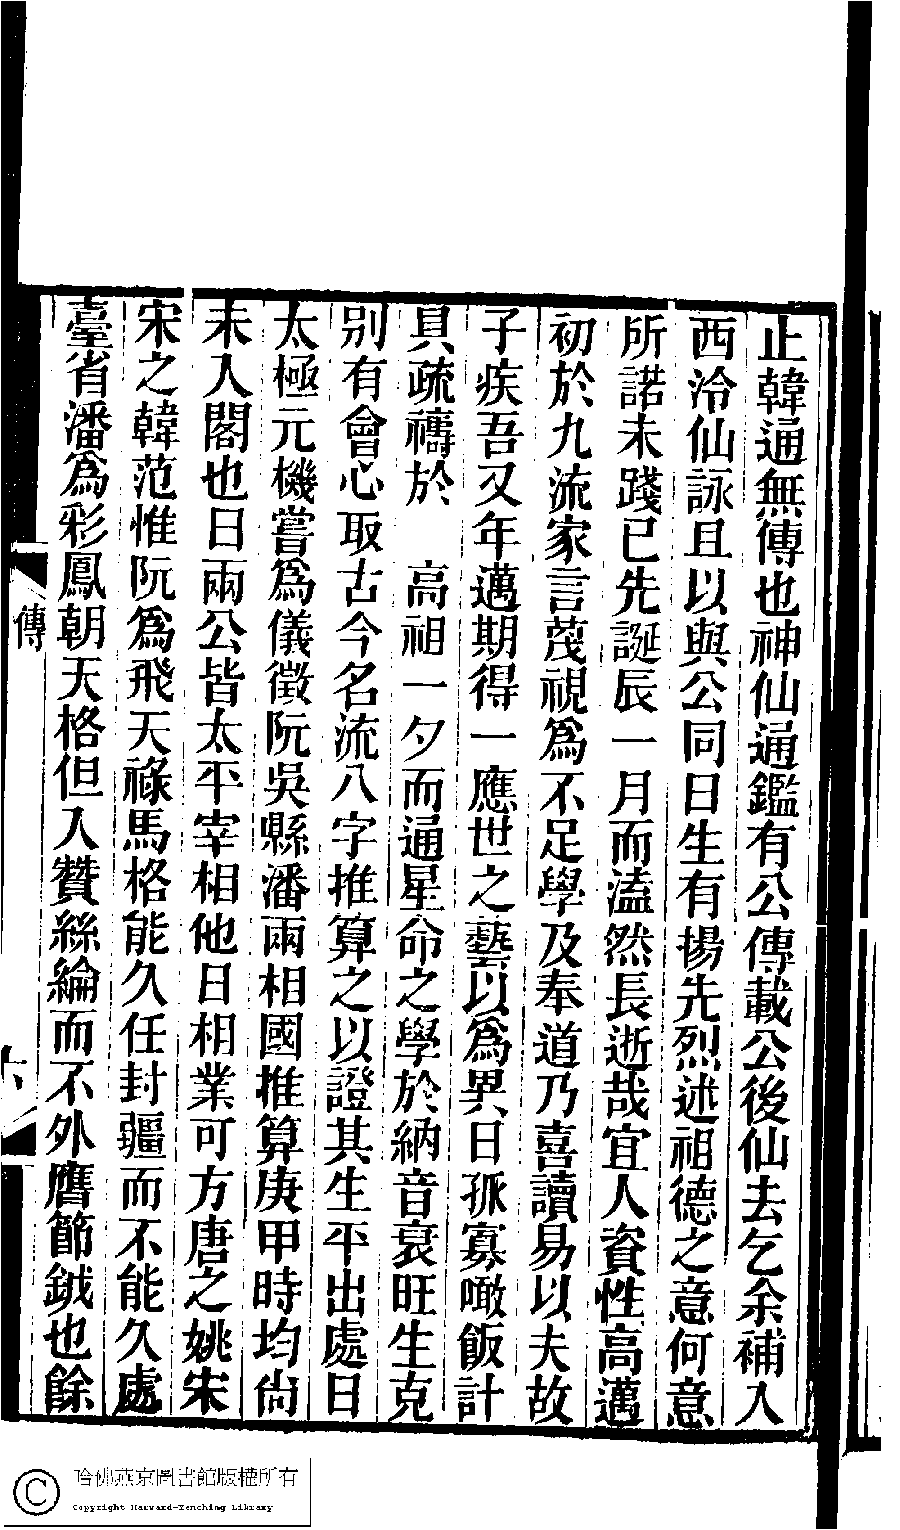 止韓通無傳也神仙通鑑有公傳載公後仙去乞余補入
西泠仙詠且以與公同日生有揚先烈述祖德之意何意
所諾未踐已先誕辰一月而溘然長逝哉宜人資性高邁
初於九流家言蔑視為不足學及奉道乃喜讀易以夫故
子疾吾又年邁期得一應世之藝以為異日孤寡噉飯計
具疏禱於　高祖一夕而通星命之學於納音衰旺生克
别有會心取古今名流八字推算之以證其生平出處日
太極元機嘗為儀徵阮吳縣潘兩相國推算庚甲時均尙
未入閣也日兩公皆太平宰相他日相業可方唐之姚宋
宋之韓范惟阮為飛天祿馬格能久任封疆而不能久處
臺省潘為彩鳳朝天格但入贊絲綸而不外膺節鉞也餘
傳
哈佛燕京圖書館版權所有
Copyright Harvard-Yenching Library